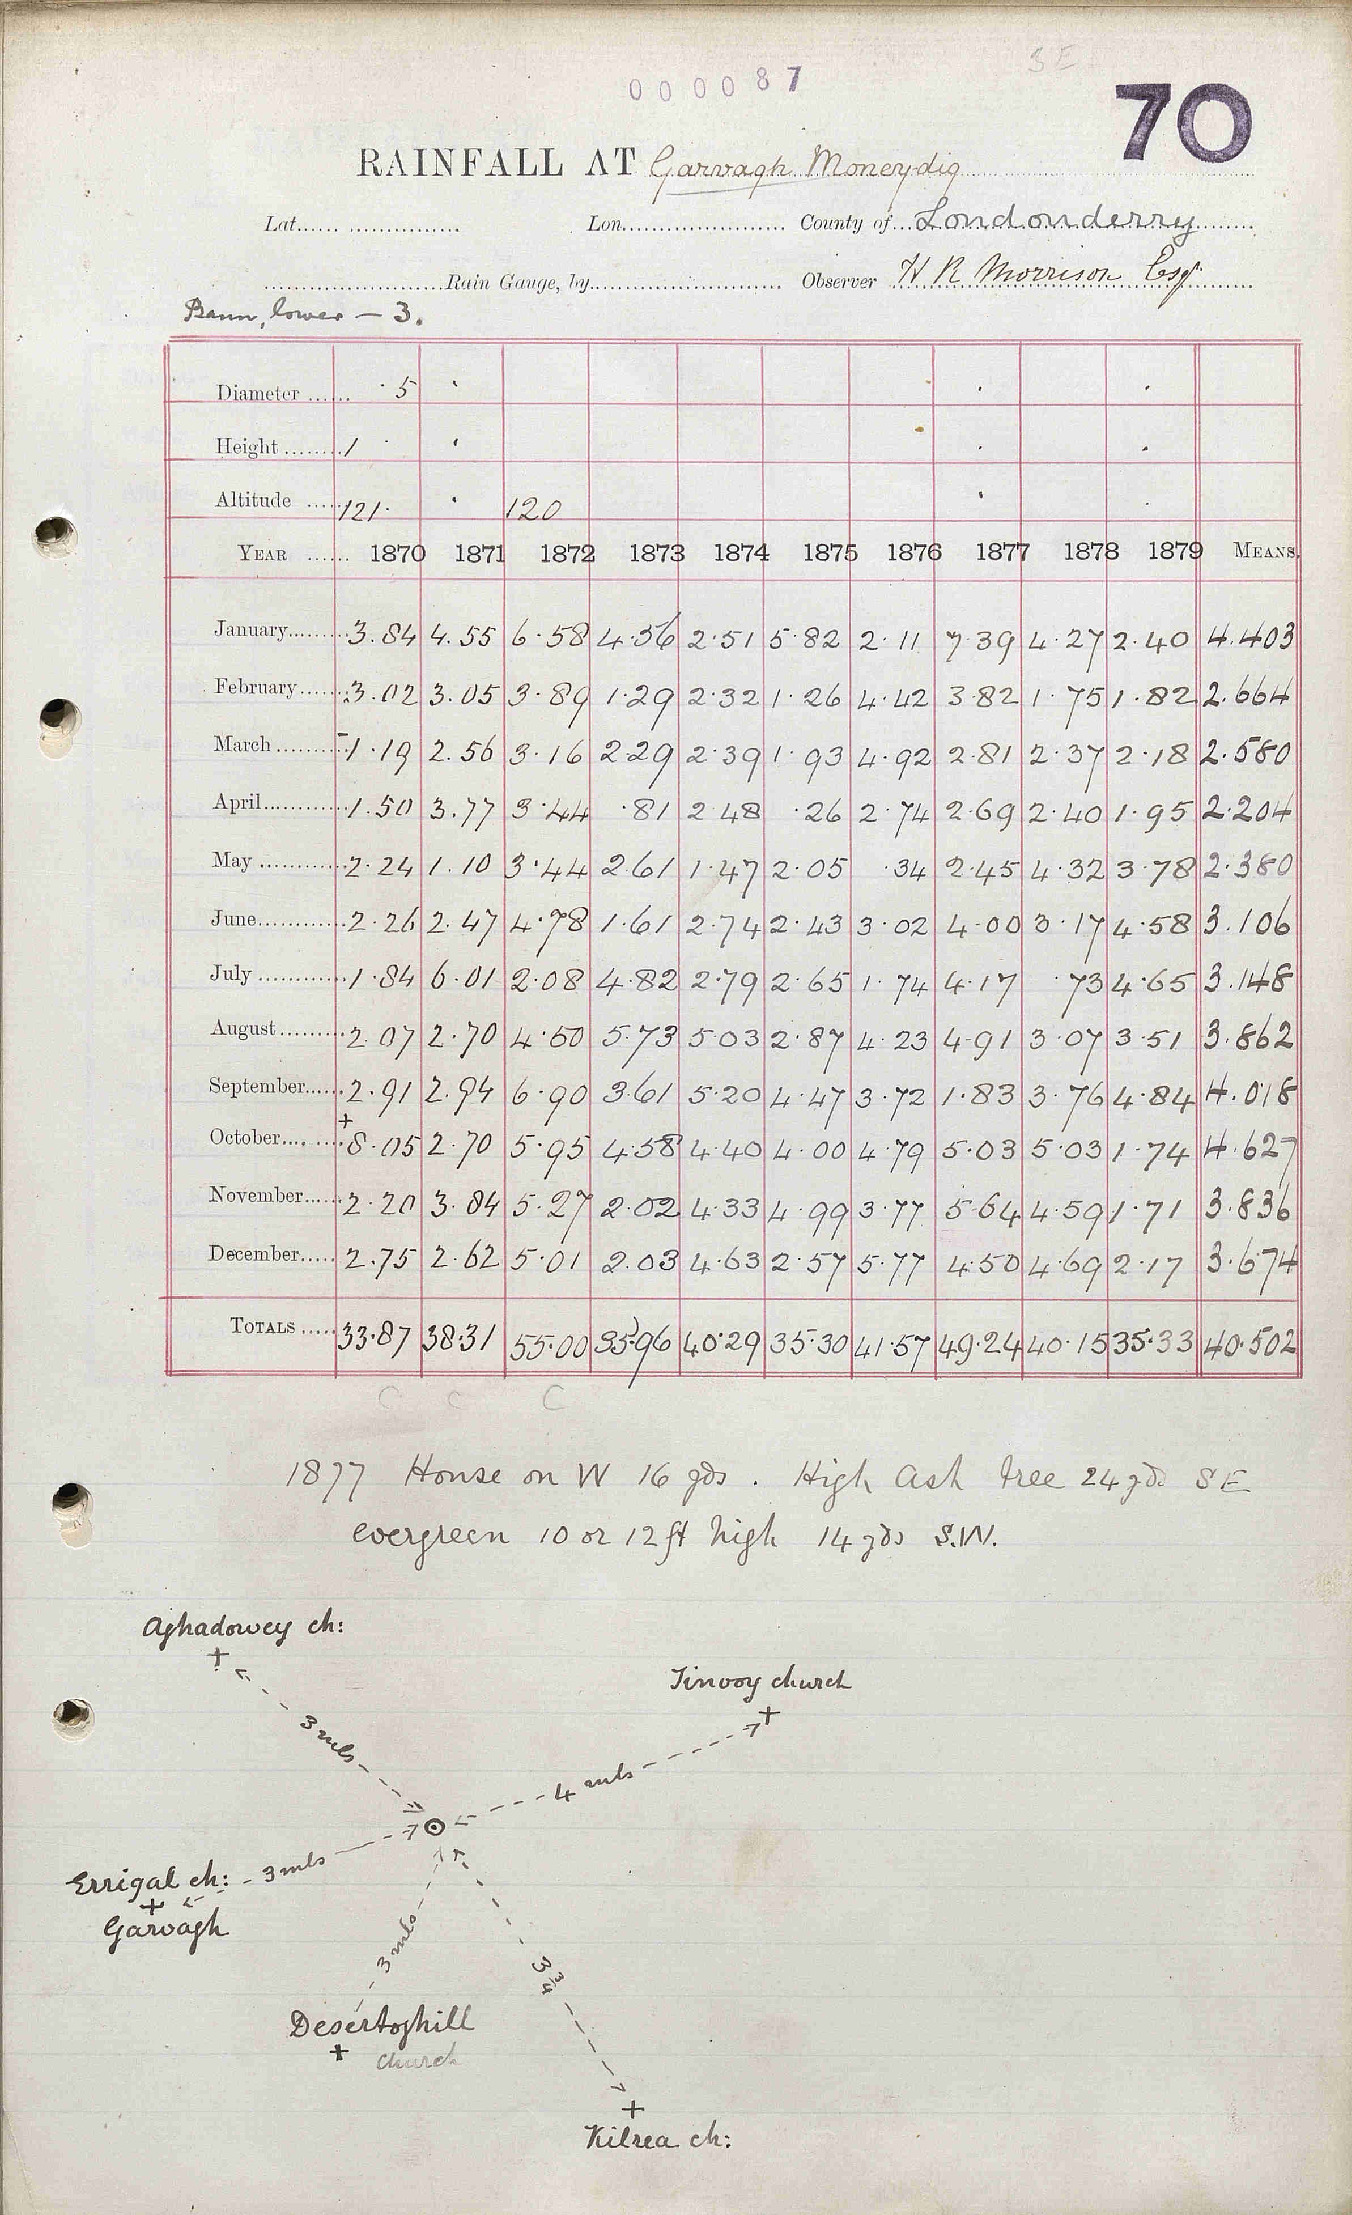 SE
000087
70
RAINFALL AT Garvagh Moneydig
Lat. Lon. County of Londonderry
Rain Gauge, by Observer H R Morrison Esqr
Bann, lower — 3.
Diameter 5
Height 1
Altitude 121 120
YEAR 1870 1871 1872 1873 1874 1875 1876 1877 1878 1879 MEANS.
January 3.84 4.55 6.58 4.56 2.51 5.82 2.11 7.39 4.27 2.40 4.403
February 3.02 3.05 3.89 1.29 2.32 1.26 4.42 3.82 1.75 1.82 2.664
March 1.19 2.56 3.16 2.29 2.39 1.93 4.92 2.81 2.37 2.18 2.580
April 1.50 3.77 3.44 .81 2.48 .26 2.74 2.69 2.40 1.95 2.204
May 2.24 1.10 3.44 2.61 1.47 2.05 .34 2.45 4.32 3.78 2.380
June 2.26 2.47 4.78 1.61 2.74 2.43 3.02 4.00 3.17 4.58 3.106
July 1.84 6.01 2.08 4.82 2.79 2.65 1.74 4.17 .73 4.65 3.148
August 2.07 2.70 4.50 5.73 5.03 2.87 4.23 4.91 3.07 3.51 3.862
September 2.91 2.94 6.90 3.61 5.20 4.47 3.72 1.83 3.76 4.84 4.018
October +8.05 2.70 5.95 4.58 4.40 4.00 4.79 5.03 5.03 1.74 4.627
November 2.20 3.84 5.27 2.02 4.33 4.99 3.77 5.64 4.59 1.71 3.836
December 2.75 2.62 5.01 2.03 4.63 2.57 5.77 4.50 4.69 2.17 3.674
TOTALS 33.87 38.31 55.00 35.96 40.29 35.30 41.57 49.24 40.15 35.33 40.502
C C C
1877 House on W 16 yds. High Ash tree 24 yds SE
evergreen 10 or 12 ft high 14 yds S.W.
Aghadowey ch:
Tinvoy church
3 mls
4 mls
Errigal ch: 3 mls
Garvagh
3 mls
3 3/4
Desertoghill
church
Kilrea ch: